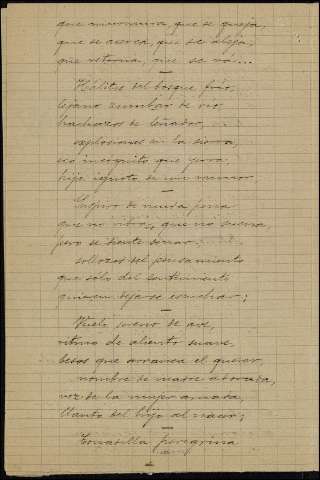 que murmura, que se queja,
que se acerca, que se aleja,
que retorna, que se vá...
Hálitos del bosque frío,
lejano zumbar de río
hachazos de leñador,
explosiones en la sierra,
eco incógnito que yerra,
hijo ignoto de un rumor
Suspiro de muda pena
que no vibra, que no suena,
pero se siente sonar:
sollozos del pensamiento
que sólo del sentimiento
quieren dejarse escuchar;
Vuelo sereno de ave,
ritmo de aliento suave,
besos que arranca el querer,
nombre de madre adorada,
voz de la mujer amada,
llanto del hijo al nacer;
Tonadilla peregrina